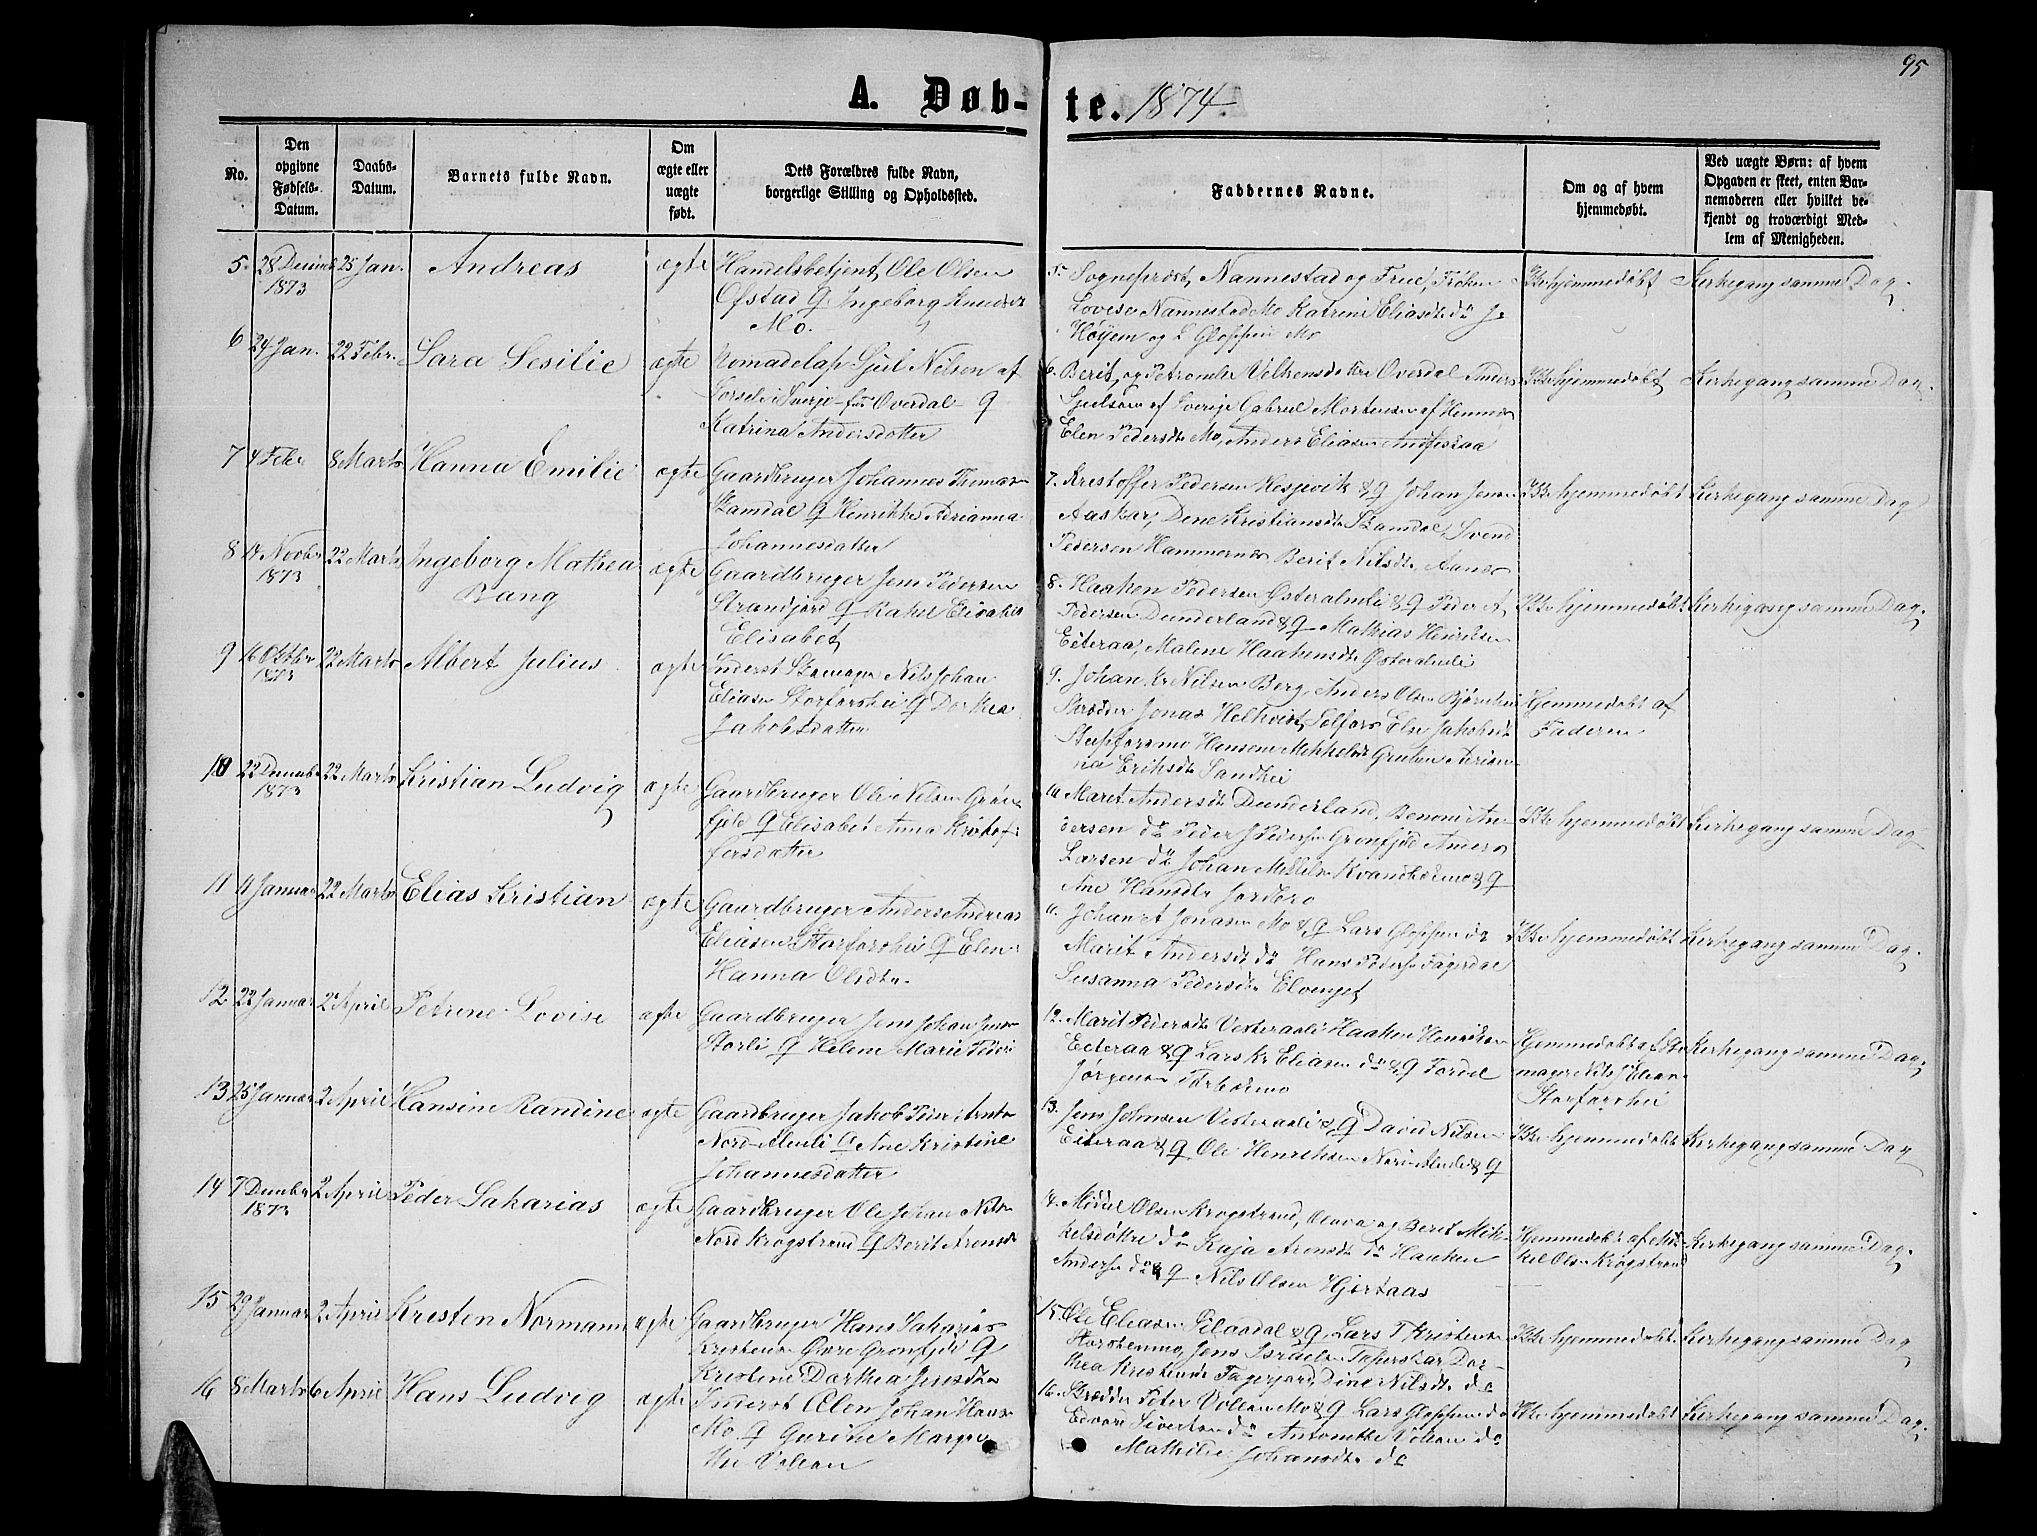 95
A. Døb-
te. 1874.
No.
Den opgivne Fødsels-Datum.
Daabs-Datum.
Barnets fulde Navn.
Om ægte eller uægte født.
Dets Forældres fulde Navn, borgerlige Stilling og Opholdssted.
Faddernes Navne.
Om og af hvem hjemmedøbt.
Ved uægte Børn: af hvem Opgaven er skeet, enten Barnemoderen eller hvilket bekjendt og troværdigt Medlem af Menigheden.
5. 28 Decemb 1873 25 Jan. Andreas ægte Handelsbetjent Ole Olsen
Ofstad & Ingeborg
Mo.
5. Sogneprest Nannestad og Frue, Frøken
Lovise Nannestad Mo Katrine Eliasdt do J.
Høyem og L Gloppen Mo
Ikke hjemmedøbt Kirkegang samme Dag.
6 24 Jan. 22 Febr. Sara Sesilie ægte Nomadelap Sjul Nilsen af
Sorsele i Sverje Overdal &
Katrina Andersdatter
6. Berit og Overdal Anders
Sjulsen af Sverige Gabriel Mortensen af Hemnes
Elen Pedersdt Mo, Anders Eliasen
Ikke hjemmedøbt Kirkegang samme Dag.
7 4 Febr 8 Marts Hanna Emilie ægte Gaardbruger Johannes
& Henrikke Adrianna
Johannesdatter
7. Kristoffer Pedersen Hespevik & Johan Jens
Aaskar, Kristiansdt Svend
Pedersen Hammernes Berit Nilsdt
Ikke hjemmedøbt Kirkegang samme Dag
8 14 Novbr 1873 22 Marts Ingeborg Mathea
Bang
ægte Gaardbruger Jens Pedersen
Strandjord & Rakel
Elisabet
8. Haaken Pedersen Østeralmli & Peder A
Pedersen Dunderland & Mathias Henriksen
Eiteraa, Malene Haakensdt Østeralmli
Ikke hjemmedøbt Kirkegang samme Dag.
9 16 Oktbr 1873 22 Marts Albert Julius ægte Inderst Skomager Nils Johan
Eliasen Storforshei & Dorthea
Jakobsdatter
9. Johan Kr Nilsen Berg, Anders Olsen
Skredder Jonas Selfors Else Jakobsdt
Stupforsmo Hansine Mikkelsdt Gruben
Eriksdt Sandhei
Hjemmedøbt af
Faderen
10 22 Decmbr 1873 22 Marts Kristian Ludvig ægte Gaardbruger Ole Nilsen Grøn-
fjeld & Elisabet Anna Kristof-
fersdatter
10. Marit Andersdt Dunderland, Benoni An-
dersen do Peder J Pedersen Grønfjeld Anders
Larsen do Johan &
Ane Hansdt Jordbro
Ikke hjemmedøbt Kirkegang samme Dag
11 11 Januar 22 Marts Elias Kristian ægte Gaardbruger Anders Andreas
Eliasen Storforshei & Elen
Hanna Olsdtr
11. Johan Jonasen Mo & Lars Gloppen do
Marit Andersdt do Hans Pedersen Fagerdal
Susanna Pedersdtr Elvenget
Ikke hjemmedøbt Kirkegang samme Dag.
12 22 Januar 2 April Petrine Lovise ægte Gaardbruger Jens Johan Jens
Storli & Helene Marie Peders
12. Marit Pedersdt Vesteraali Haaken Henriksen
Eiteraa & Lars Kr Eliasen do &
Jørgensen
Hjemmedøbt af Sko-
mager Nils J Elian
Storforshei
Kirkegang samme Dag,
13 25 Januar 2 April Hansine Randine ægte Gaardbruger Jakob Peder
Nord & Ane Kristine
Johannesdatter
13. Jens Johnsen Vesteraali & David Nilsen
Eiteraa & Ole Henriksen &
Ikke hjemmedøbt Kirkegang samme Dag
14 7 Decmbr 1873 2 April Peder Sakarias ægte Gaardbruger Ole Johan Nils
Nord Krogstrand & Berit Arensdt
14. Mikkel Olsen Krogstrand, Olava og Berit Mik-
kelsdøttre do Kaja Arensdt do Haaken
Andersen do & Nils Olsen Hjertaas
Hjemmedøbt af Mik-
kel Olsen Krogstrand
Kirkegang samme Dag.
15 29 Januar 2 April Kresten Normann ægte Gaardbruger Hans Sakarias
Kristensen Grønfjeld &
Kristine Dorthea Jensdtr
15. Ole Eliasen & Lars T Kristens
Jens Israels Dor-
thea Kristensdt Dine Nilsdt do
Ikke hjemmedøbt Kirkegang samme Dag
16 8 Marts 6 April Hans Ludvig ægte Inderst Johan Hans
Mo. & Gurine Margre
the Volean
16. Skredder Peter Volean Mo & Lars Gloppen do
Edvard Sivertsen do Antonette Volean do
Mathilde Johansdtr do
Ikke hjemmedøbt Kirkegang samme Dag,